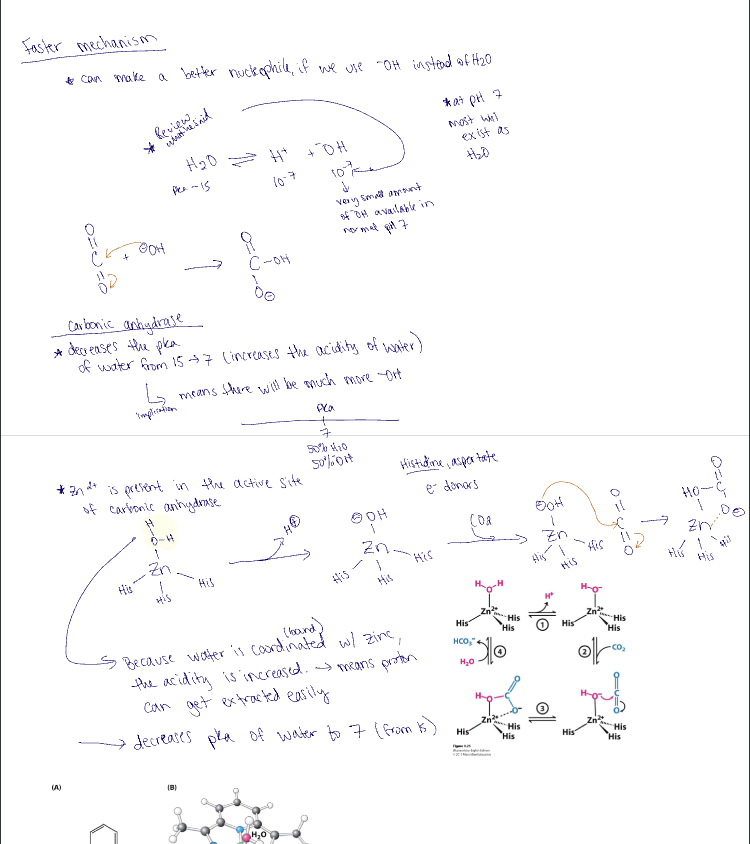 Faster mechanism
* can make a better nucleophile, if we use ⁻OH instead of H2O
* Review
what he said
* at pH 7
most will
exist as
H2O
H2O ⇌ H⁺ + ⁻OH
pka ~15
10⁻⁷
10⁻⁷
↓
very small amount
of ⁻OH available in
normal pH 7
O
C
O
+ ⊖OH
→
O
C-OH
O⊖
Carbonic anhydrase
* decreases the pka
of water from 15 → 7 (increases the acidity of water)
implication
means there will be much more ⁻OH
pka
7
50% H2O
50% ⁻OH
* Zn²⁺ is present in the active site
of carbonic anhydrase
Histidine, aspertate
e⁻ donors
H
O-H
Zn
His
His
His
H⊕
⊖OH
Zn
His
His
His
CO2
⊖OH
Zn
His
His
His
O
C
O
O
HO-C
O⊖
Zn
His
His
His
(bound)
Because water is coordinated w/ zinc,
the acidity is increased. → means proton
can get extracted easily
→ decreases pka of water to 7 (from 15)
H
O
H
Zn²⁺
His
His
His
H⁺
1
H-O⁻
Zn²⁺
His
His
His
HCO3⁻
4
H2O
2
CO2
H-O
C
O
O⁻
Zn²⁺
His
His
His
3
H-O⁻
O
C
O
Zn²⁺
His
His
His
Figure 9.25
(A)
(B)
H2O